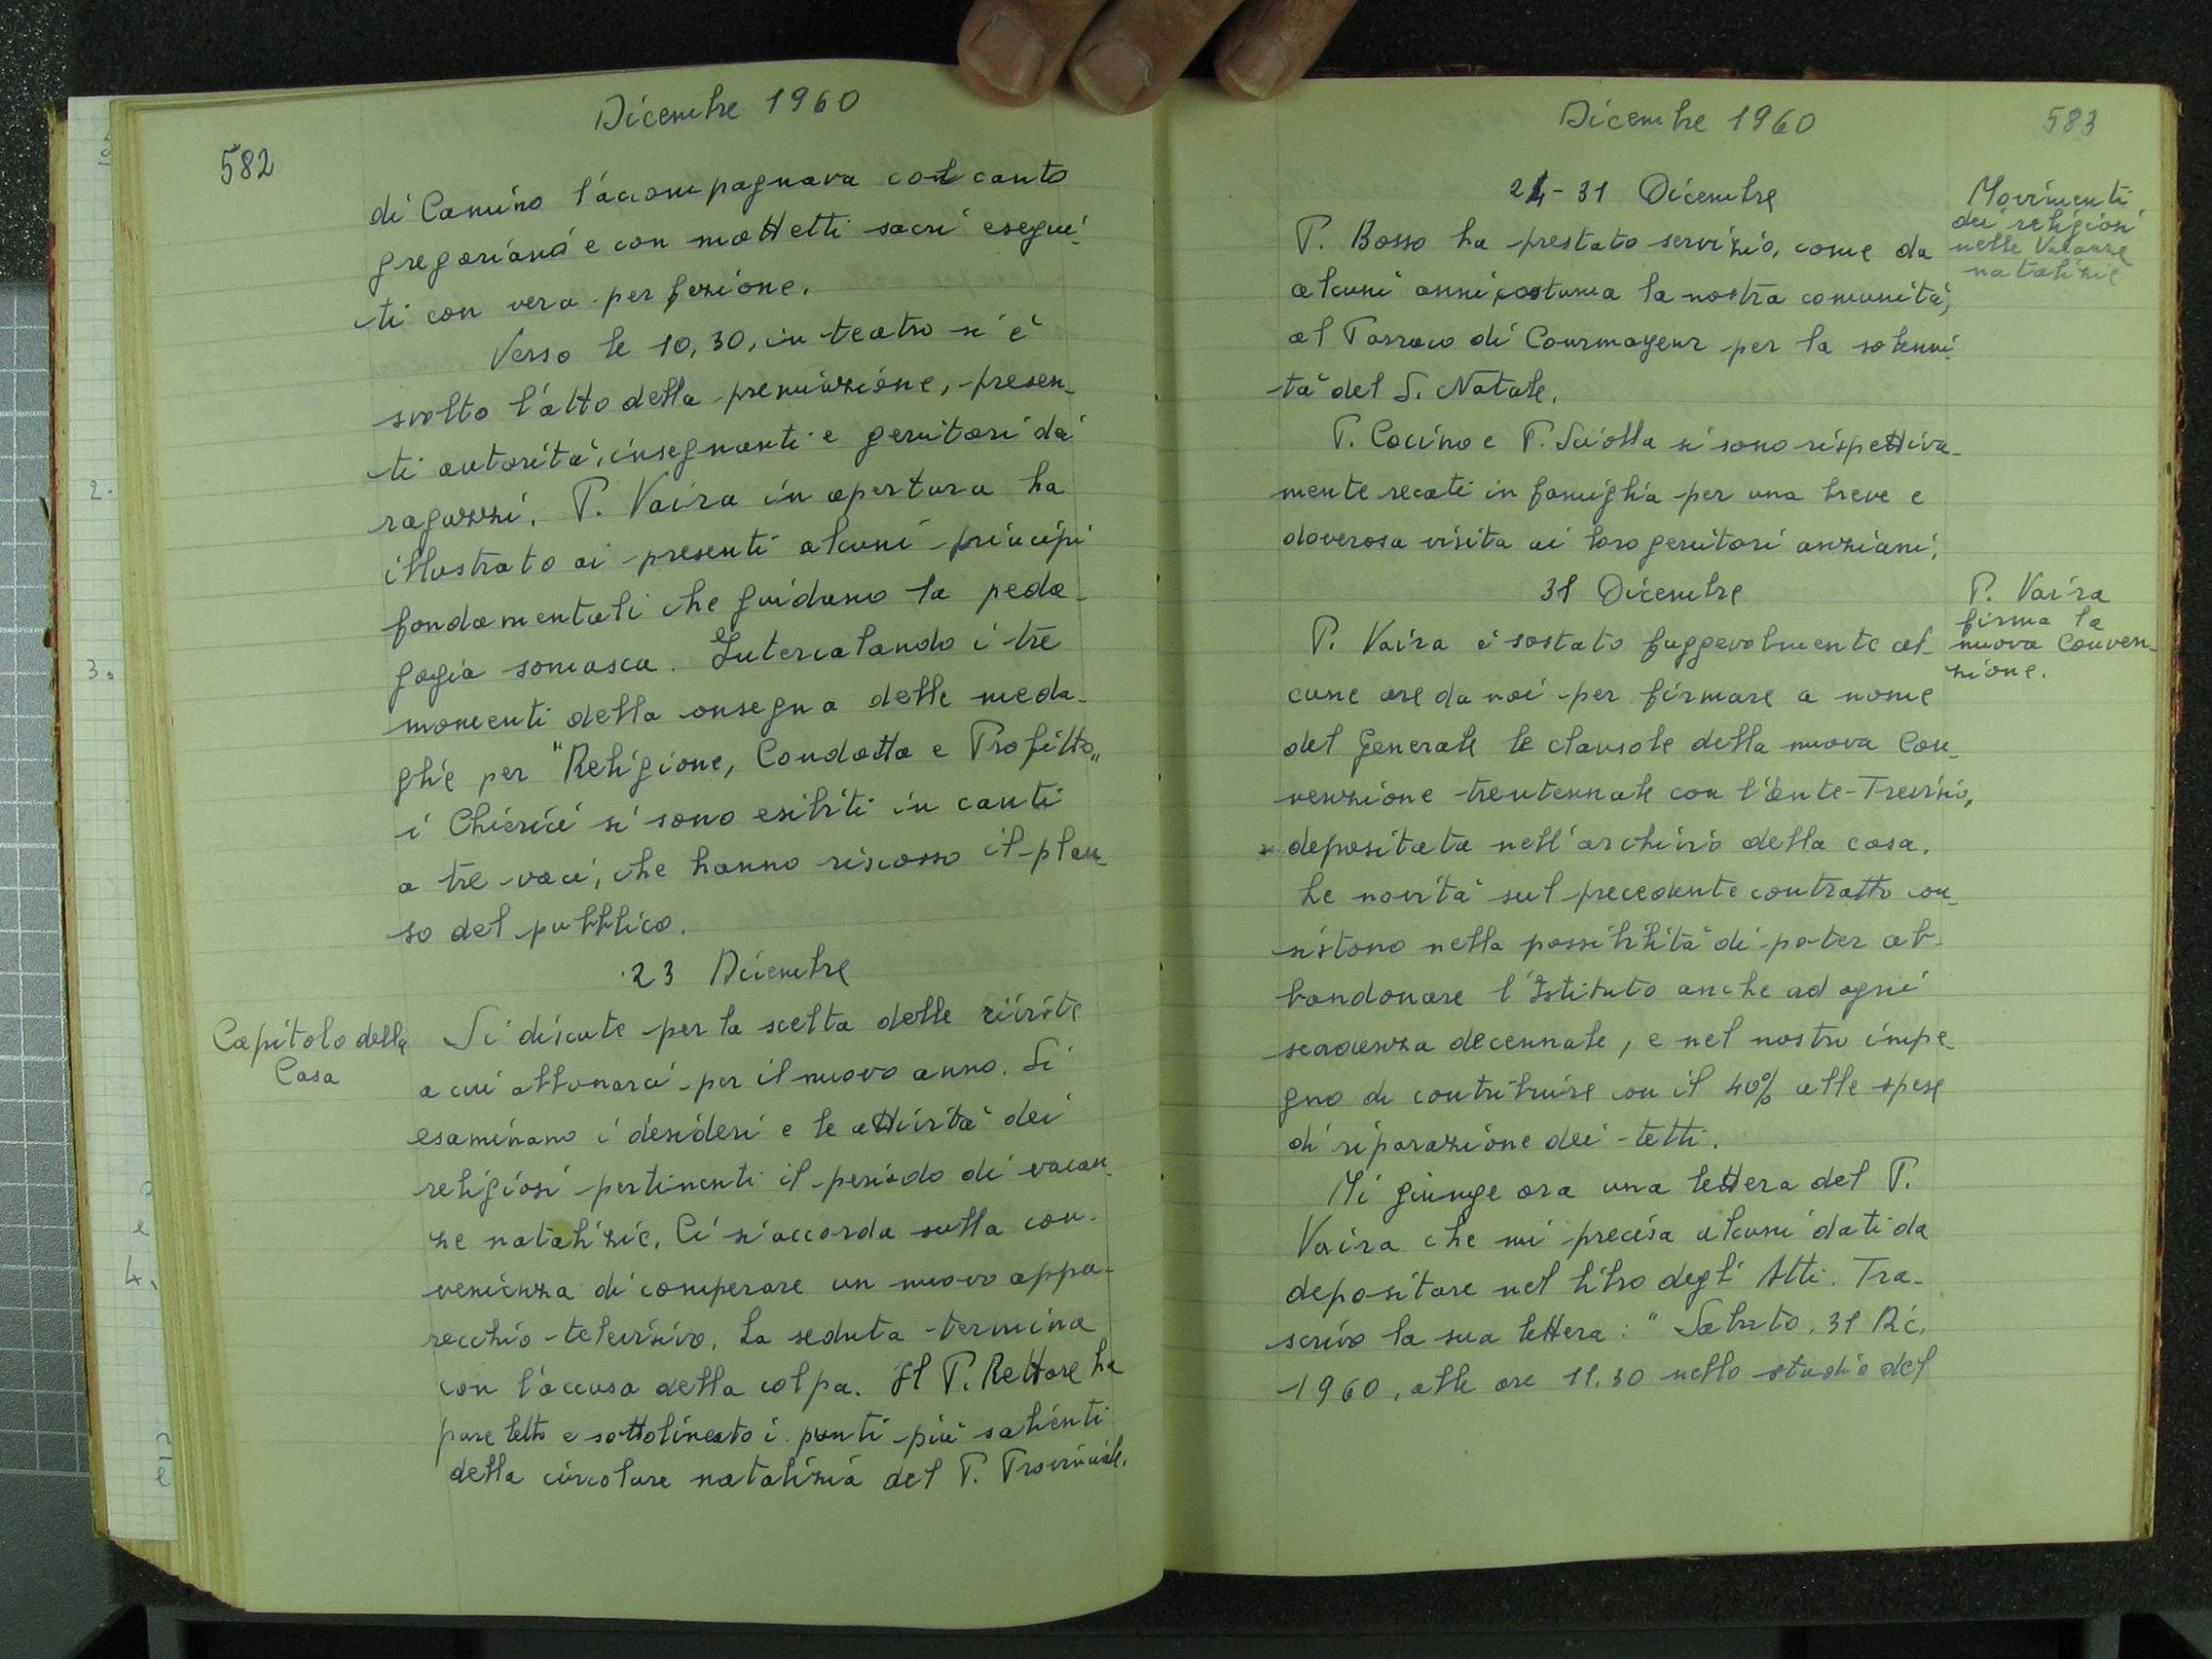 Dicembre 1960
582
di Camino l'accompagnava col canto
gregoriano e con mottetti sacri esegui-
ti con vera perfezione.
Verso le 10,30, in teatro si è
svolto l'atto della premiazione, presen-
ti autorità, insegnanti e genitori dei
ragazzi. P. Vaira in apertura ha
illustrato ai presenti alcuni principi
fondamentali che guidano la peda-
gogia somasca. Intercalando i tre
momenti della consegna delle meda-
glie per "Religione, Condotta e Profitto"
i Chierici si sono esibiti in canti
a tre voci, che hanno riscosso il plau-
so del pubblico.
23 Dicembre
Capitolo della
Casa
Si discute per la scelta delle riviste
a cui abbonarci per il nuovo anno. Si
esaminano i desideri e le attività dei
religiosi pertinenti il periodo di vacan-
ze natalizie. Ci si accorda sulla con-
venienza di comperare un nuovo appa-
recchio televisivo. La seduta termina
con l'accusa della colpa. Il P. Rettore ha
pure letto e sottolineato i punti più salienti
della circolare natalizia del P. Provinciale.
Dicembre 1960
583
24-31 Dicembre
Movimenti
dei religiosi
nelle Vacanze
natalizie
P. Bosso ha prestato servizio, come da
alcuni anni costuma la nostra comunità,
al Parroco di Courmayeur per la solenni-
tà del S. Natale.
P. Cocino e P. Sciolla si sono rispettiva-
mente recati in famiglia per una breve e
doverosa visita ai loro genitori anziani.
31 Dicembre
P. Vaira
firma la
nuova Conven-
zione.
P. Vaira è sostato fuggevolmente al-
cune ore da noi per firmare a nome
del Generale le clausole della nuova Con-
venzione trentennale con l'Ente-Trevisio,
depositata nell'archivio della casa.
Le novità sul precedente contratto con-
sistono nella possibilità di poter ab-
bandonare l'Istituto anche ad ogni
scadenza decennale, e nel nostro impe-
gno di contribuire con il 40% alle spese
di riparazione dei tetti.
Mi giunge ora una lettera del P.
Vaira che mi precisa alcuni dati da
depositare nel libro degli Atti. Tra-
scrivo la sua lettera: "Sabato, 31 Dic.
1960, alle ore 11.30 nello studio del